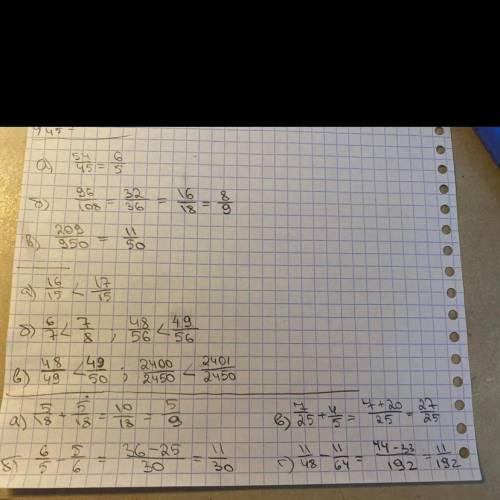 а) 54/45 = 6/5
б) 96/108 = 32/36 = 16/18 = 8/9
в) 209/950 = 11/50
а) 16/15 < 17/15
б) 6/7 < 7/8 ; 48/56 < 49/56
в) 48/49 < 49/50 ; 2400/2450 < 2401/2450
а) 5/18 + 5/18 = 10/18 = 5/9
в) 7/25 + 4/5 = 7+20/25 = 27/25
б) 6/5 - 5/6 = 36-25/30 = 11/30
г) 11/48 - 11/64 = 44-33/192 = 11/192